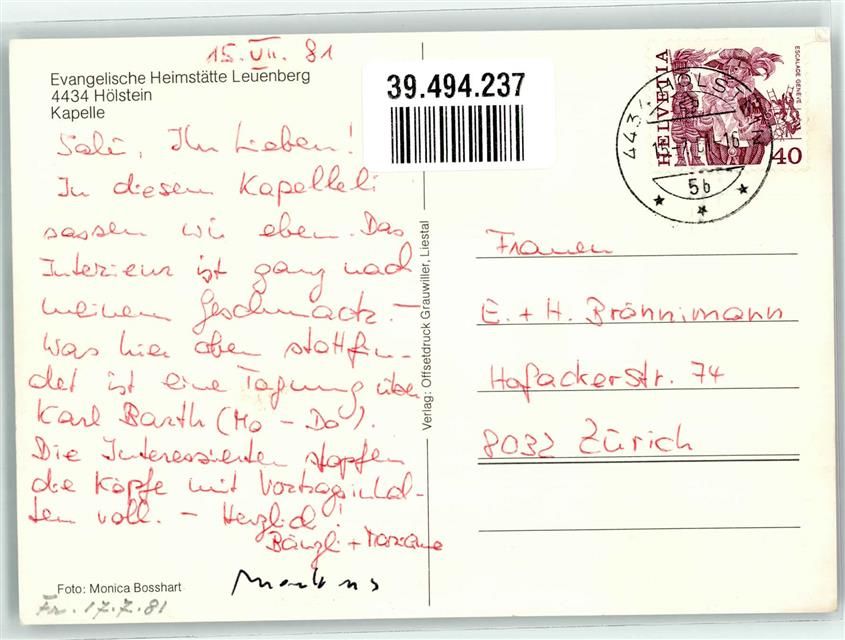 15. VII. 81
Evangelische Heimstätte Leuenberg
4434 Hölstein
Kapelle
39.494.237
HELVETIA
ESCALADE GENÈVE
40
4434 HÖLST
-16
5b
Salü, Ihr Lieben!
In diesem Kapelleli
sassen wir eben. Das
Interieur ist ganz nach
meinem Geschmack. –
Was hier oben stattfin-
det ist eine Tagung über
Karl Barth (Mo – Do).
Die Interessierten stopfen
die Köpfe mit Vortragsinhal-
ten voll. – Herzlich!
Bänzli + Marianne
Markus
Verlag: Offsetdruck Grauwiller, Liestal
Frauen
E. + H. Brönnimann
Hofackerstr. 74
8032 Zürich
Foto: Monica Bosshart
Fr. 17.7.81